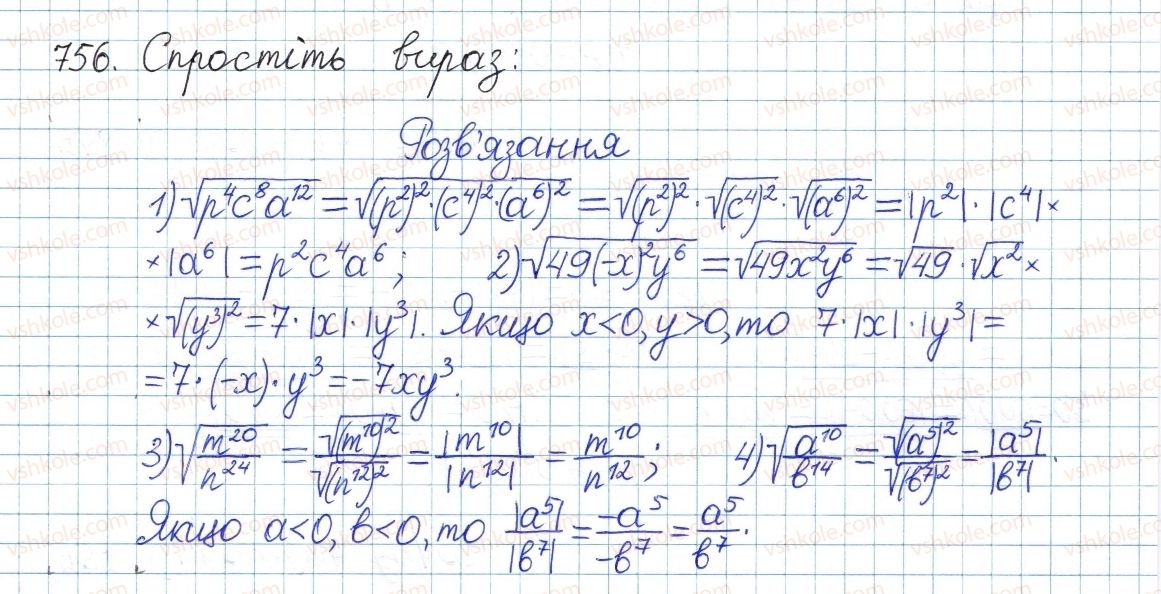 756. Спростіть вираз:
Розв'язання
1) √(p⁴c⁸a¹²) = √((p²)²·(c⁴)²·(a⁶)²) = √((p²)²)·√((c⁴)²)·√((a⁶)²) = |p²|·|c⁴|×
×|a⁶| = p²c⁴a⁶; 2) √(49(-x)²y⁶) = √(49x²y⁶) = √49·√(x²)×
×√((y³)²) = 7·|x|·|y³|. Якщо x<0, y>0, то 7·|x|·|y³| =
= 7·(-x)·y³ = -7xy³.
3) √(m²⁰/n²⁴) = √((m¹⁰)²)/√((n¹²)²) = |m¹⁰|/|n¹²| = m¹⁰/n¹²; 4) √(a¹⁰/b¹⁴) = √((a⁵)²)/√((b⁷)²) = |a⁵|/|b⁷|.
Якщо a<0, b<0, то |a⁵|/|b⁷| = -a⁵/-b⁷ = a⁵/b⁷.
vshkole.com